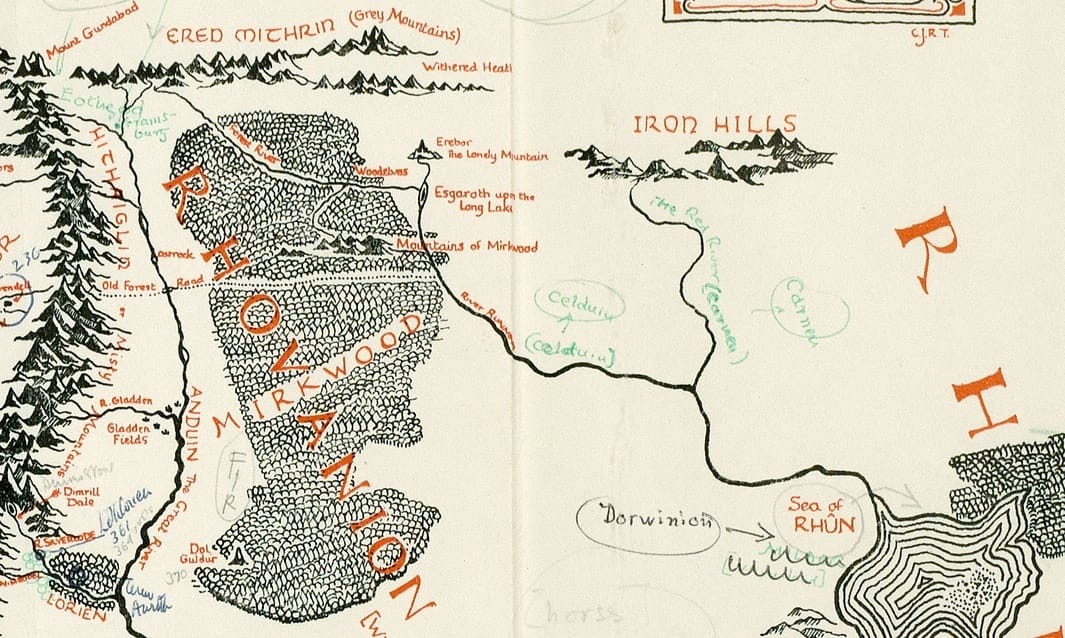 C.J.R.T.
Mount Gundabad
ERED MITHRIN (Grey Mountains)
Withered Heath
Eotheod
Frams-
burg
IRON HILLS
HITHAEGLIR or Misty Mountains
Forest River
Erebor
The Lonely Mountain
Woodelves
Esgaroth upon the
Long Lake
The Red River (Carnen)
RHOVANION
RH
230
Carrock
Mountains of Mirkwood
Old Forest Road
River Running
Celduin
(Celduin)
Carnen
MIRKWOOD
R. Gladden
Gladden
Fields
ANDUIN The Great River
FIR
Dimrill
Dale
Lothlorien
361
Dorwinion
Sea of
RHÛN
R. SILVERLODE
Dol
Guldur
370
LORIEN
[horse]